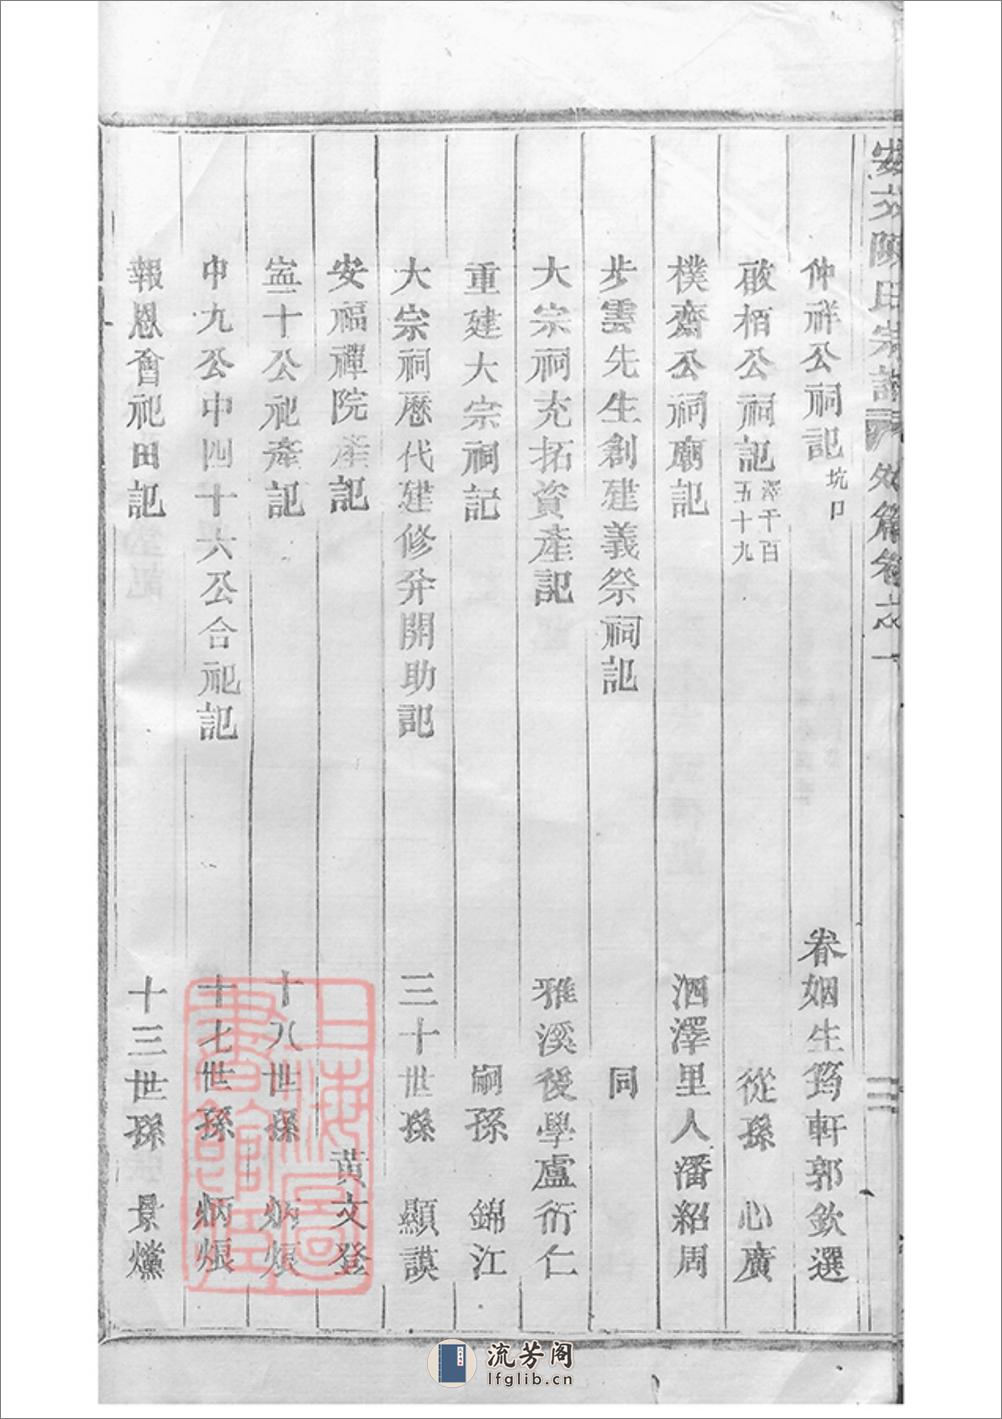 安文陳氏宗譜 外篇卷之一
仲祥公祠記 坑口 眷姻生筠軒郭欽選
啟栢公祠記 澤千百五十九 從孫 心廣
樸齋公祠廟記 泗澤里人潘紹周
步雲先生創建義祭祠記 同
大宗祠充拓資產記 雅溪後學盧衍仁
重建大宗祠記 嗣孫 錦江
大宗祠歷代建修並開助記 三十世孫 顯謨
安福禪院產記 黃文登
十公祀產記 十八世孫 炳煨
中九公中四十六公合祀記 十七世孫 炳煨
報恩會祀田記 十三世孫 景爣
二
上海圖書館藏
流芳阁
lfglib.cn